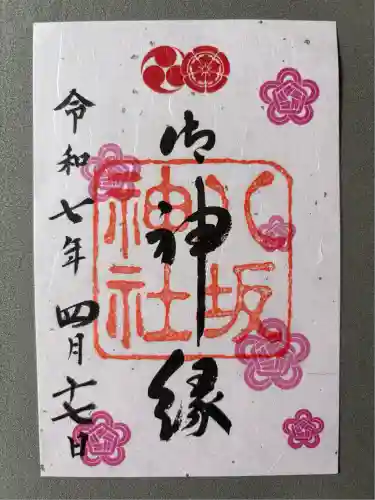 御神縁
八坂
神社
令和七年 四月十七日